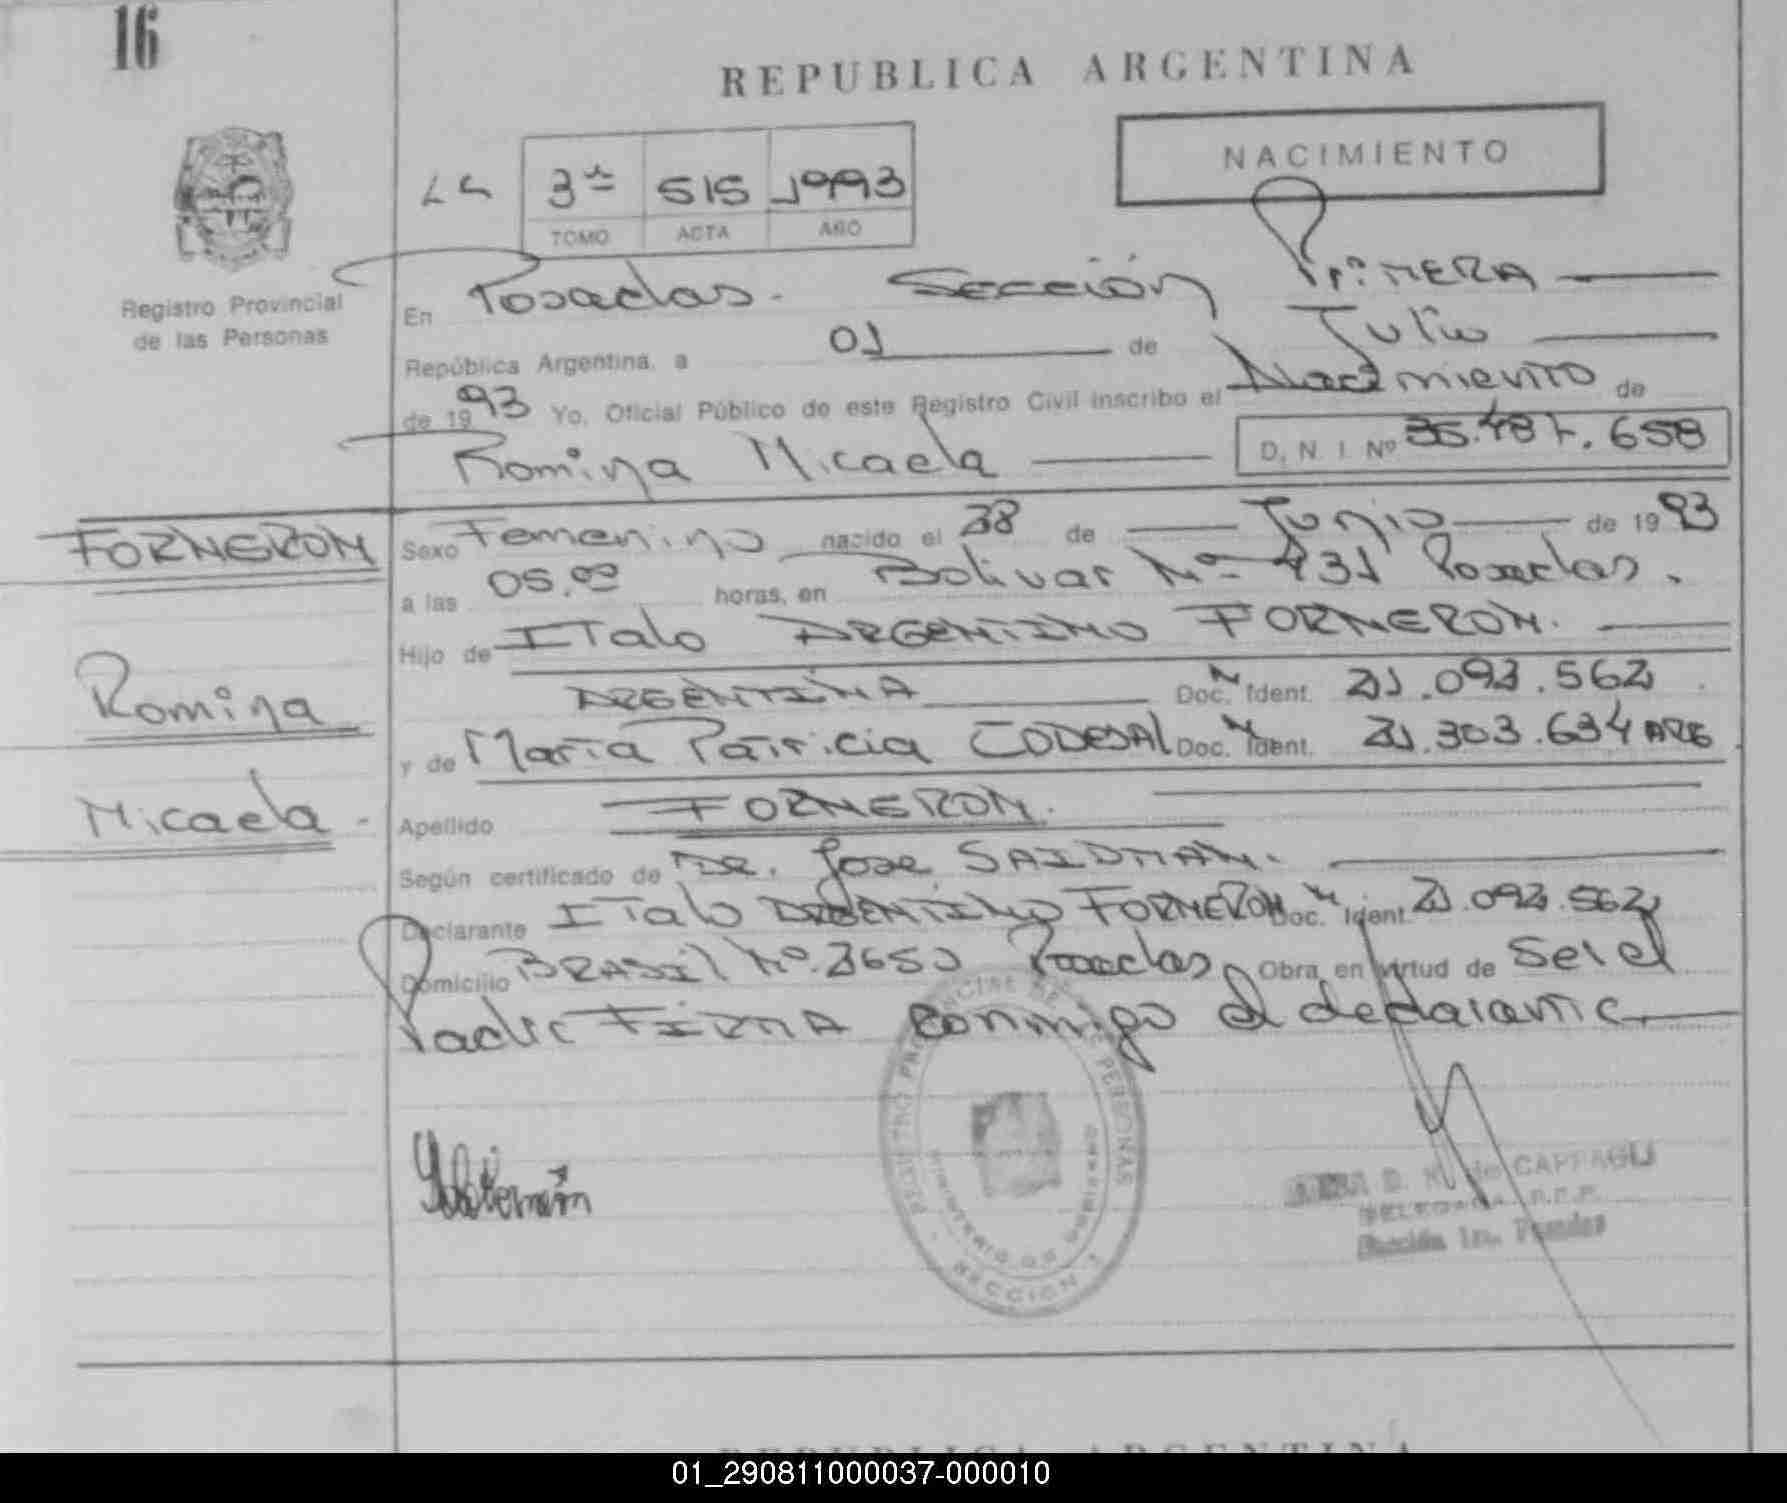 16
REPUBLICA ARGENTINA
NACIMIENTO
3ª 515 1993
TOMO ACTA AÑO
Registro Provincial
de las Personas
En Posadas. Sección Primera
República Argentina, a 01 de Julio
de 1993 Yo, Oficial Público de este Registro Civil inscribo el Nacimiento de
Romina Micaela D. N. I. Nº 658
FORNERON
Sexo Femenino nacido el 28 de Junio de 1993
a las 05,00 horas, en Bolivar Nº 431 Posadas.
Hijo de Italo ARGENTINO FORNERON.
ARGENTINA Doc. Ident. 21.092.562
Romina
y de María Patricia CODESAL Doc. Ident. 21.303.634 ARG
Micaela.
Apellido FORNERON.
Según certificado de DR. Jose SAIDMAN.
Declarante Italo ARGENTINO FORNERON Doc. Ident. 21.092.562
Domicilio BRASil Nº 2650 Posadas Obra en virtud de Ser el
Padre FIRMA conmigo el declarante
REGISTRO PROVINCIAL DE LAS PERSONAS
MINISTERIO DE GOBIERNO
SECCION 1
D. de CAPPAGLI
DELEGADA R.P.P.
Sección 1ra. Posadas
REPUBLICA ARGENTINA
01_290811000037-000010